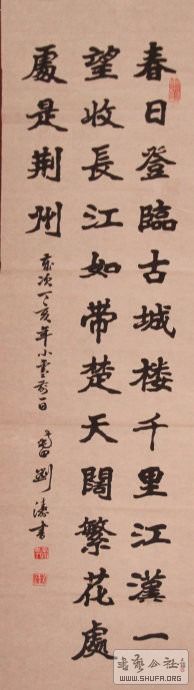 春日登臨古城楼千里江漢一
望收長江如帶楚天闊繁花處
處是荆州
歲次丁亥年小雪前一日
劉濤書
書藝公社
WWW.SHUFA.ORG